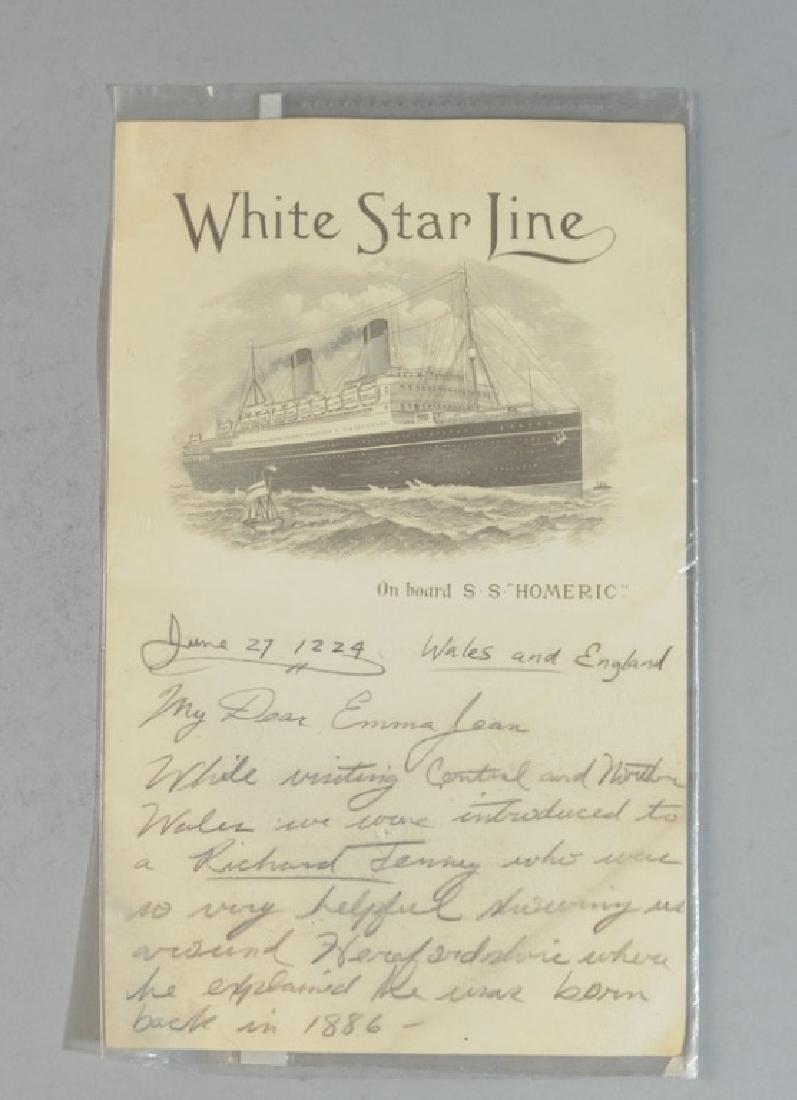 White Star Line
On board S.S. "HOMERIC".
June 27 1224 Wales and England
My Dear Emma Jean
While visiting Central and Northern
Wales we were introduced to
a Richard Tenney who was
so very helpful showing us
around Herefordshire where
he explained he was born
back in 1886 –